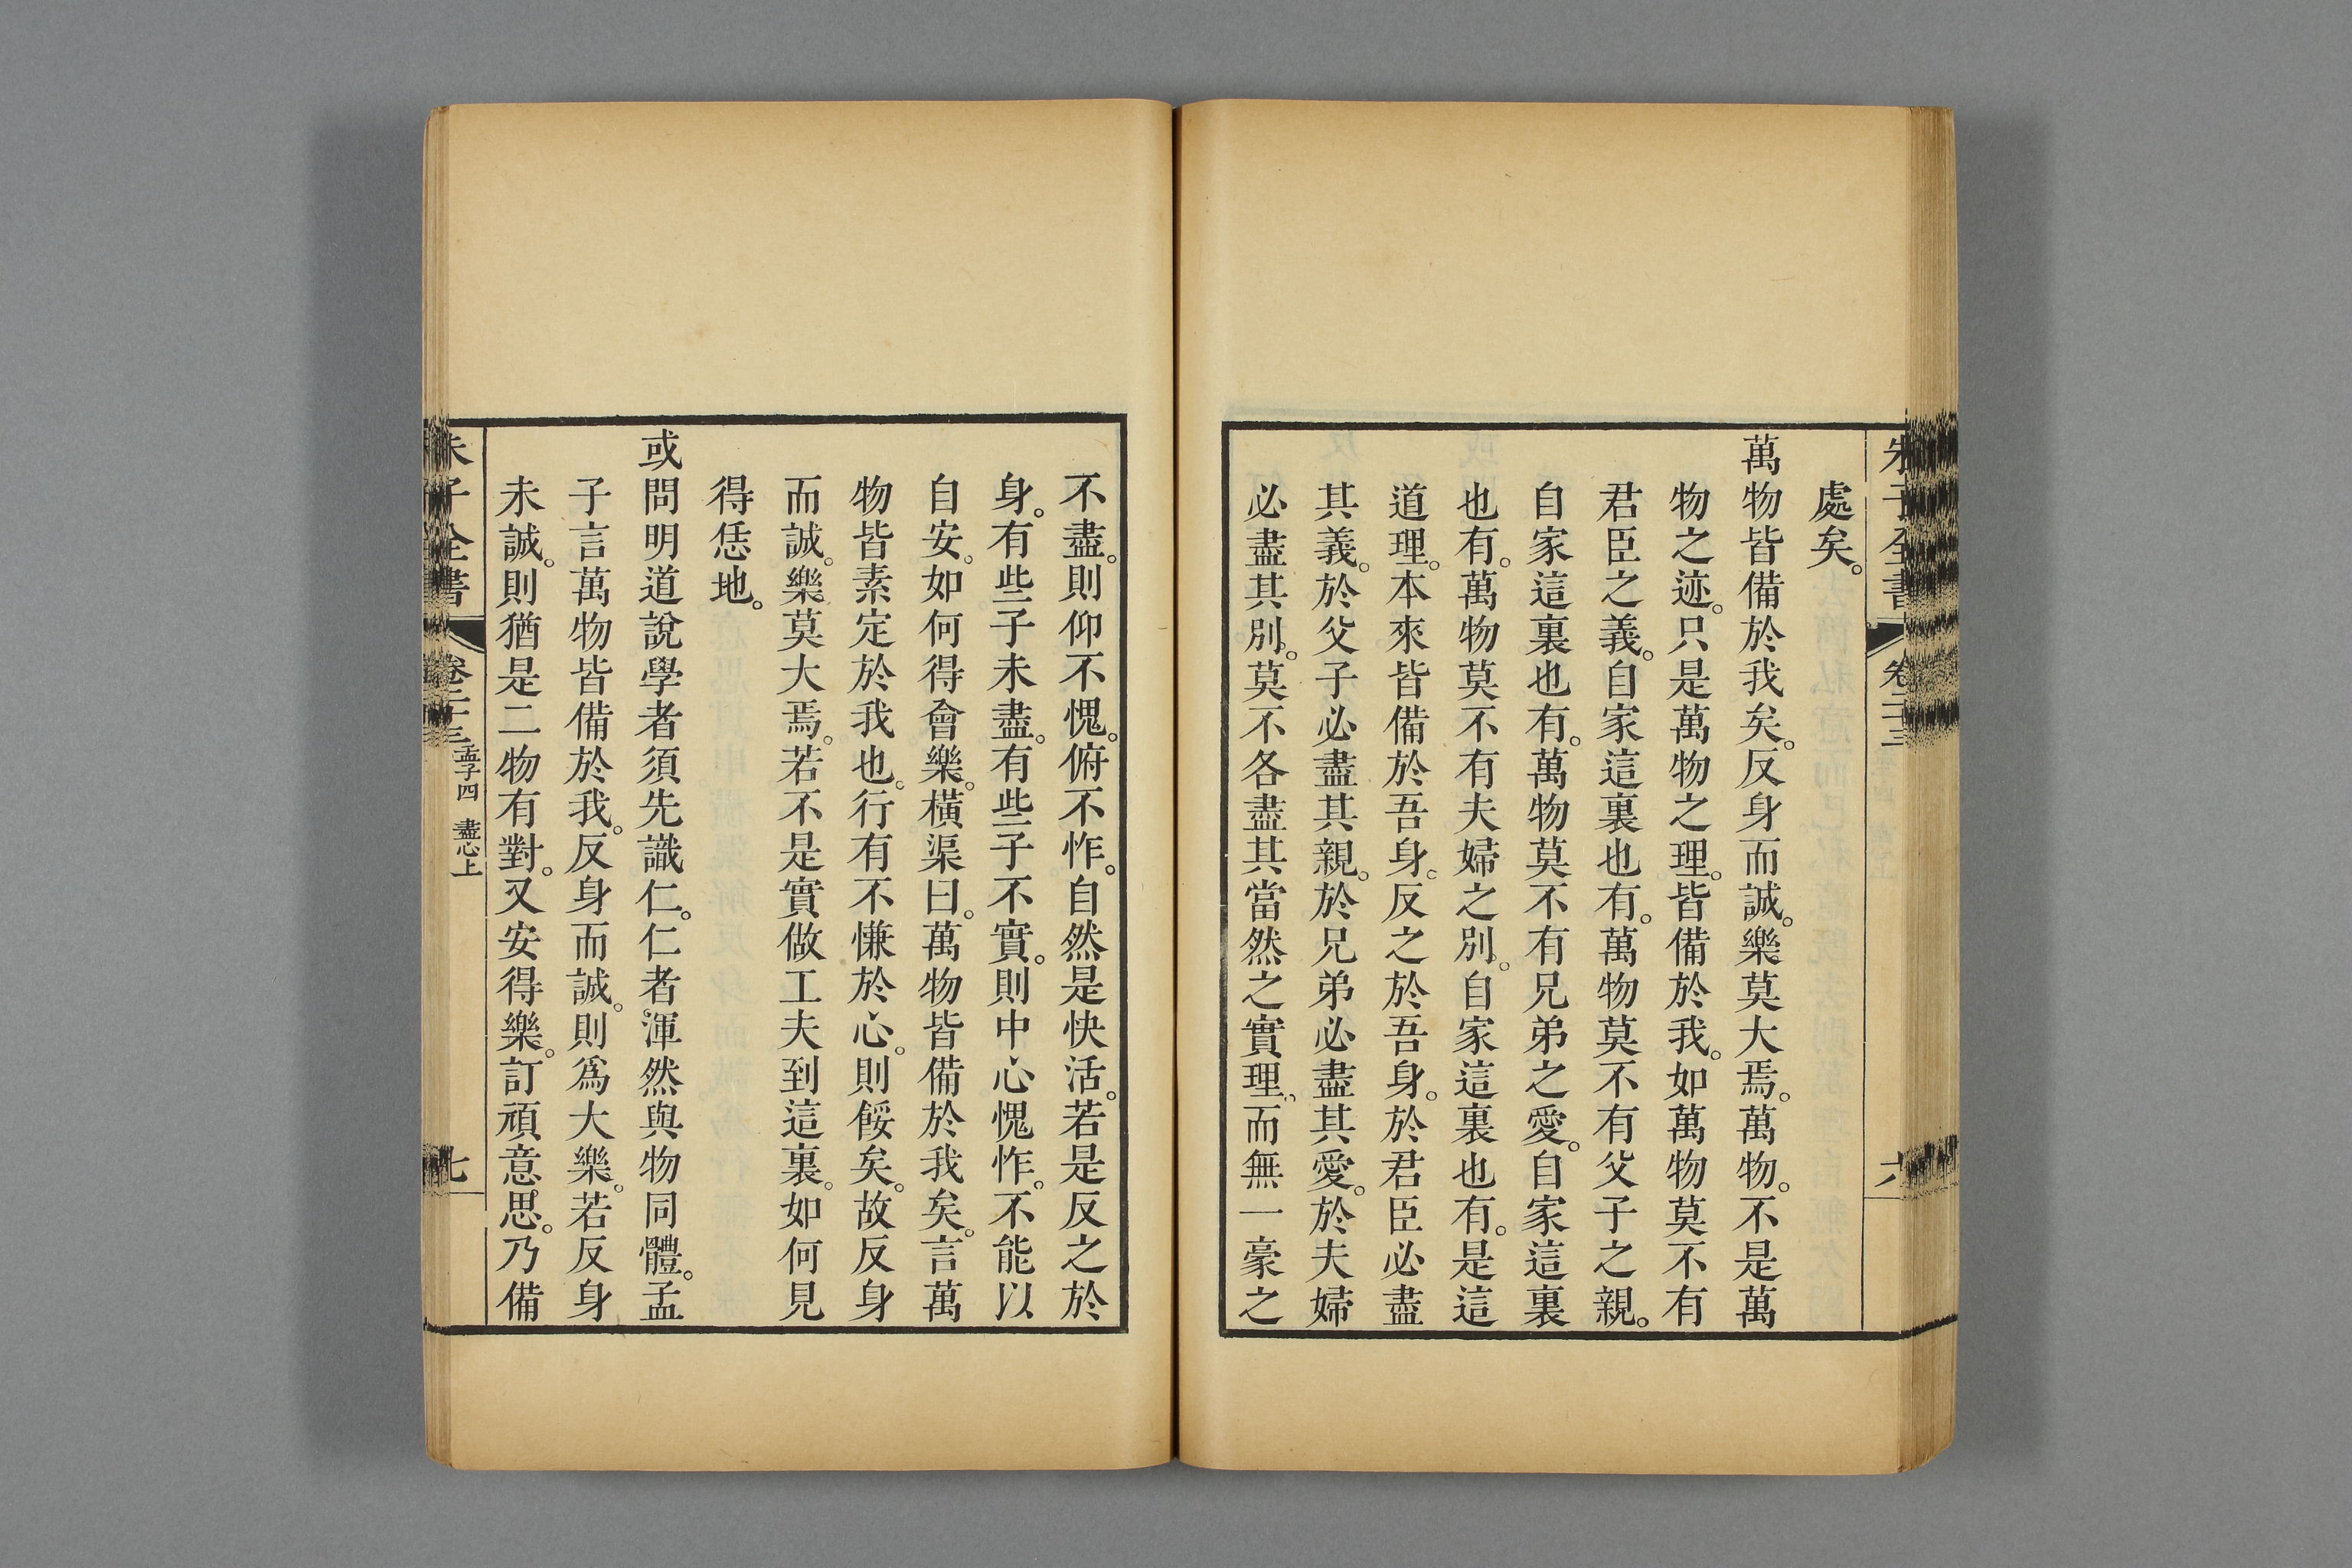 處矣。
萬物皆備於我矣。反身而誠。樂莫大焉。萬物。不是萬
物之迹。只是萬物之理。皆備於我。如萬物莫不有
君臣之義。自家這裏也有。萬物莫不有父子之親。
自家這裏也有。萬物莫不有兄弟之愛。自家這裏
也有。萬物莫不有夫婦之別。自家這裏也有。是這
道理。本來皆備於吾身。反之於吾身。於君臣必盡
其義。於父子必盡其親。於兄弟必盡其愛。於夫婦
必盡其別。莫不各盡其當然之實理。而無一豪之
不盡。則仰不愧。俯不怍。自然是快活。若是反之於
身。有些子未盡。有些子不實。則中心愧怍。不能以
自安。如何得會樂。橫渠曰。萬物皆備於我矣。言萬
物皆素定於我也。行有不慊於心。則餒矣。故反身
而誠。樂莫大焉。若不是實做工夫到這裏。如何見
得恁地。
或問明道說學者須先識仁。仁者。渾然與物同體。孟
子言萬物皆備於我。反身而誠。則爲大樂。若反身
未誠。則猶是二物有對。又安得樂。訂頑意思。乃備
朱子全書 卷二十三 孟子四 盡心上 七